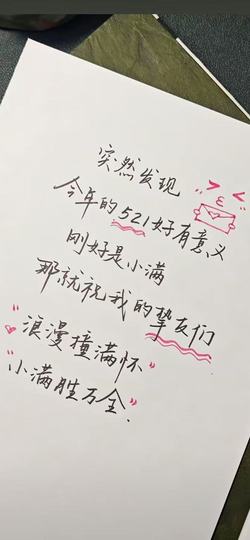 突然发现
今年的521好有意义
刚好是小满
那就祝我的挚友们
"浪漫撞满怀"
"小满胜万全"